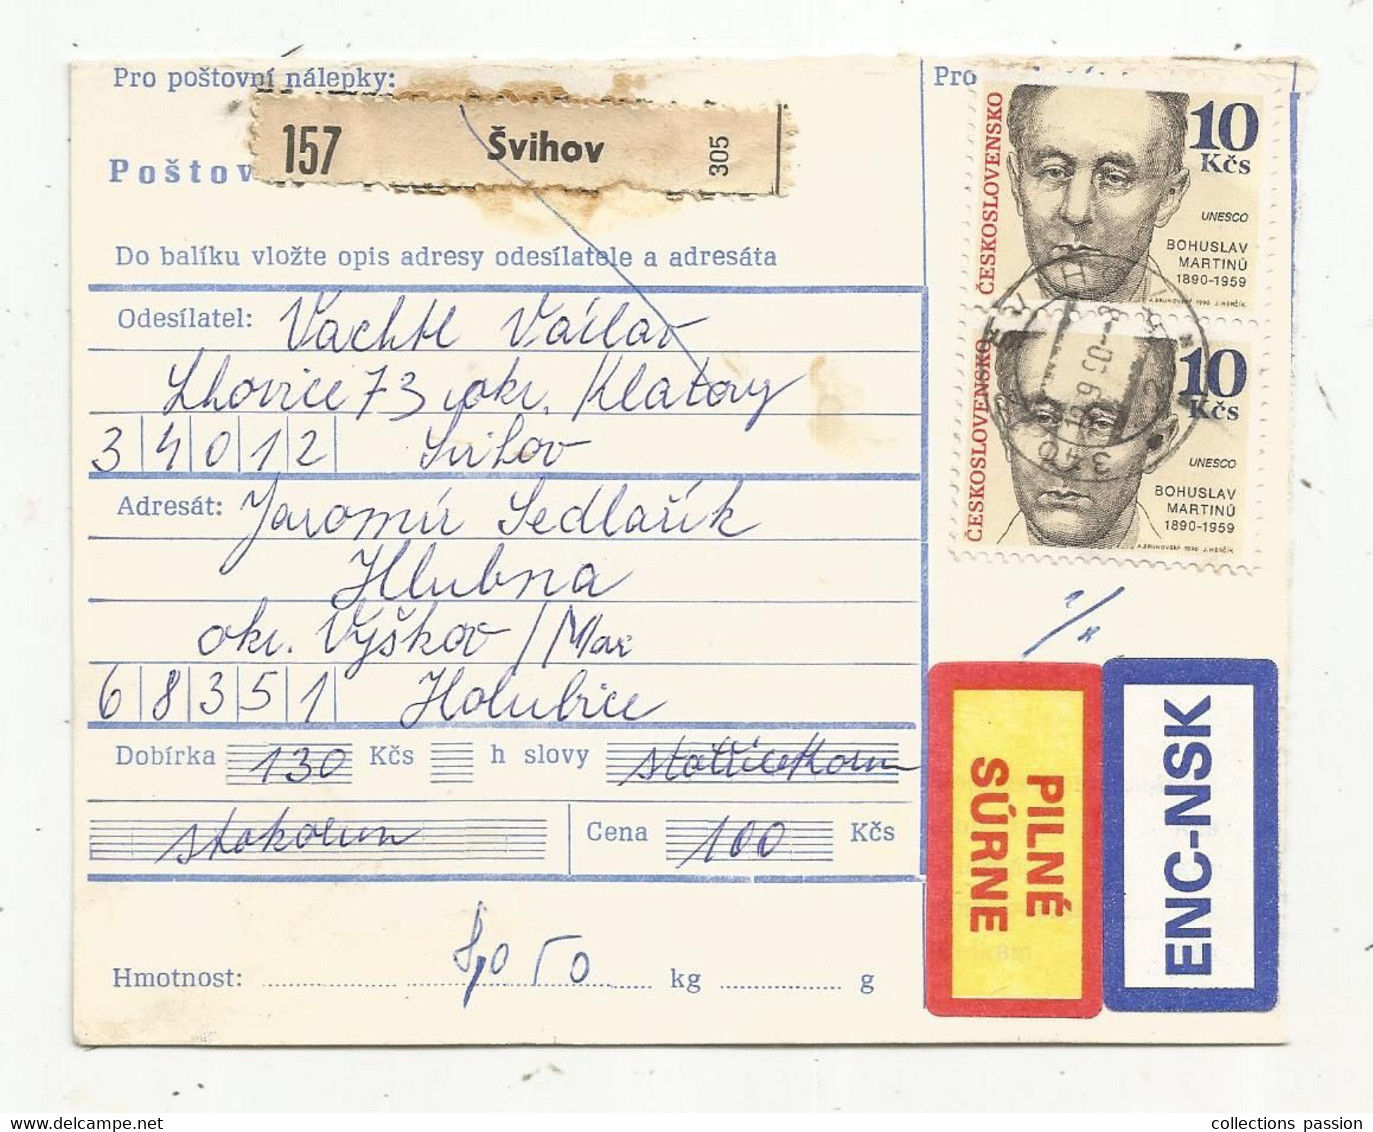 Pro poštovní nálepky:
157 Švihov 305
Poštov
Do balíku vložte opis adresy odesílatele a adresáta
Odesílatel: Vachtl Václav
Lhovice 73 okr. Klatovy
34012 Švihov
Adresát: Jaromír Sedlařík
Hlubna
okr. Výškov / Mor
68351 Holubice
Dobírka 130 Kčs h slovy stotřicetkorun
stokorun Cena 100 Kčs
Hmotnost: kg g
Pro
ČESKOSLOVENSKO
10
Kčs
UNESCO
BOHUSLAV
MARTINŮ
1890-1959
A.BRUNOVSKÝ 1990 J.HERČÍK
ČESKOSLOVENSKO
10
Kčs
UNESCO
BOHUSLAV
MARTINŮ
1890-1959
A.BRUNOVSKÝ 1990 J.HERČÍK
PILNÉ
SÚRNE
ENC-NSK
collections passion